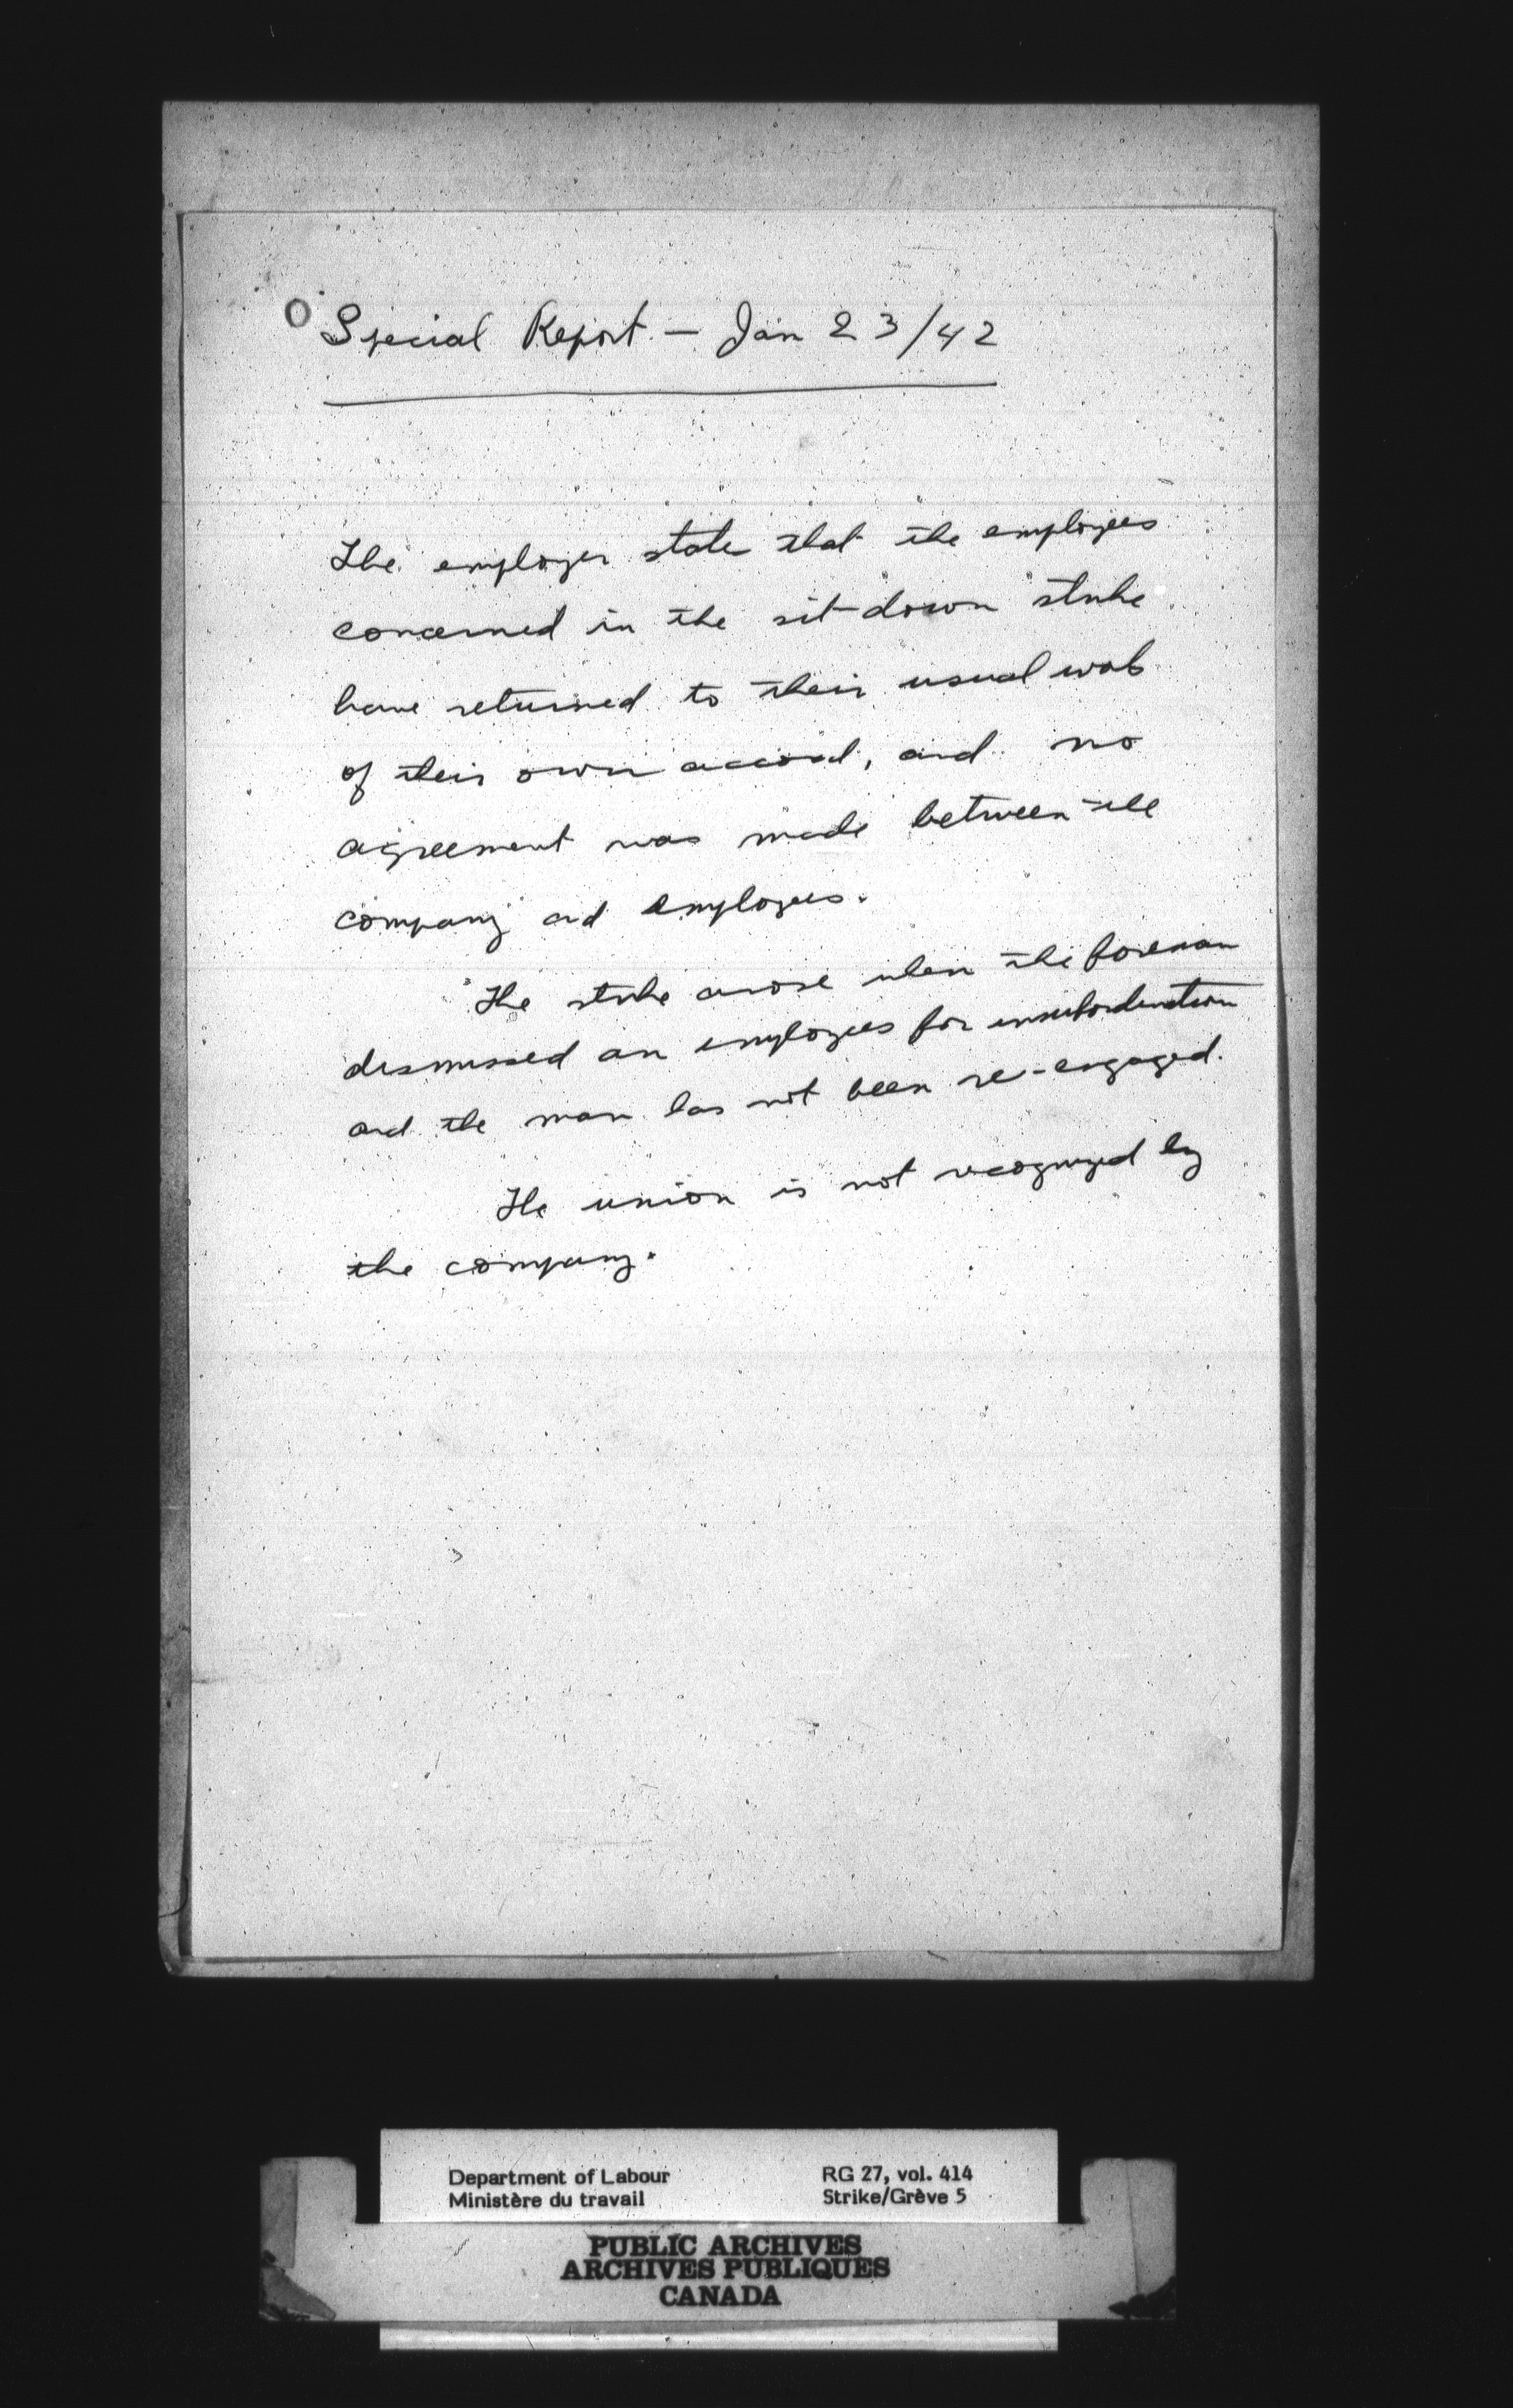 Special Report - Jan 23/42
The employer state that the employees
concerned in the "sit-down" strike
have returned to their usual work
of their own accord, and no
agreement was made between the
company and employees.
The strike arose when the foreman
dismissed an employees for insubordination
and the man has not been re-engaged.
The union is not recognized by
the company.
Department of Labour
Ministère du travail
RG 27, vol. 414
Strike/Grève 5
PUBLIC ARCHIVES
ARCHIVES PUBLIQUES
CANADA